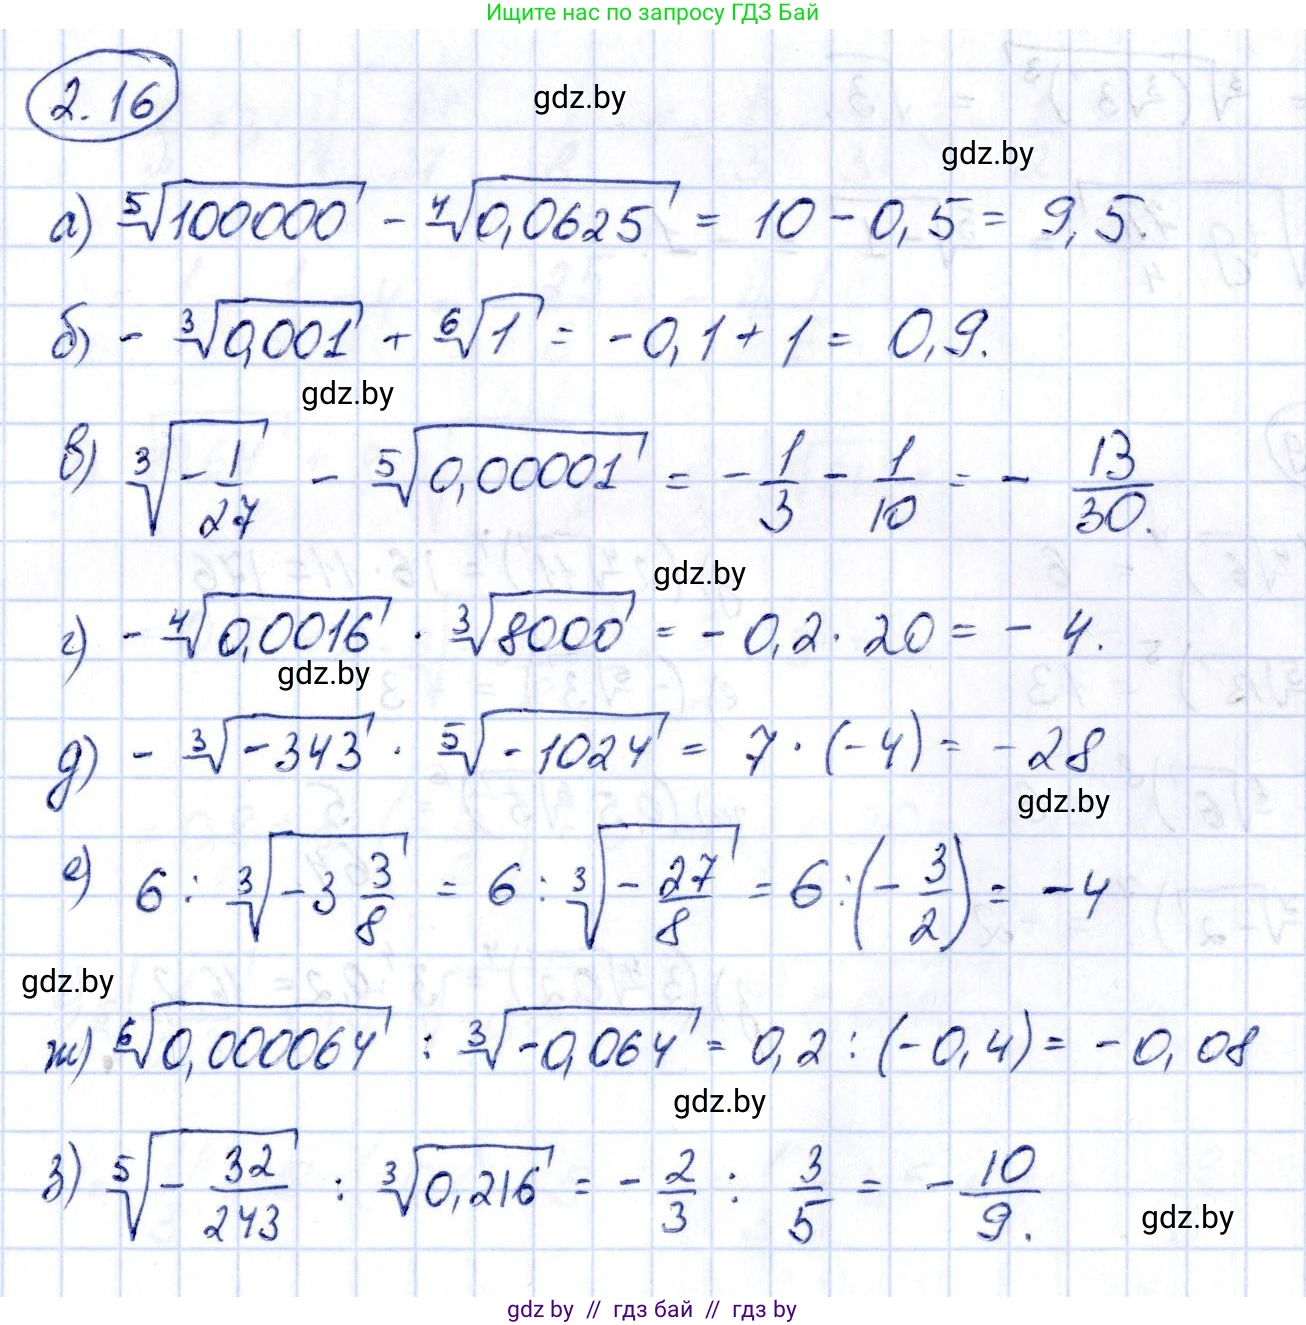 Ищите нас по запросу ГДЗ Бай
2.16
gdz.by
gdz.by
а) ⁵√100000 - ⁴√0,0625 = 10 - 0,5 = 9,5.
б) - ³√0,001 + ⁶√1 = -0,1 + 1 = 0,9.
gdz.by
в) ³√(-1/27) - ⁵√0,00001 = - 1/3 - 1/10 = - 13/30.
gdz.by
г) - ⁴√0,0016 · ³√8000 = - 0,2 · 20 = - 4.
gdz.by
д) - ³√-343 · ⁵√-1024 = 7 · (-4) = -28
gdz.by
е) 6 : ³√(-3 3/8) = 6 : ³√(-27/8) = 6 : (- 3/2) = -4
gdz.by
ж) ⁶√0,000064 : ³√-0,064 = 0,2 : (-0,4) = -0,08
gdz.by
з) ⁵√(-32/243) : ³√0,216 = - 2/3 : 3/5 = - 10/9.
gdz.by
gdz by // гдз бай // гдз by